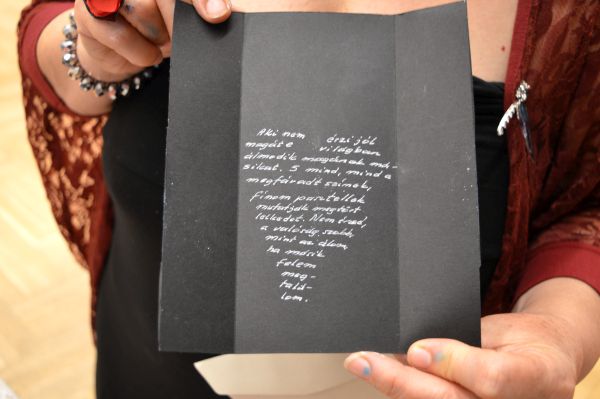 Aki nem érzi jól
magát e világban
álmodik magának má-
sikat. S mind, mind a
megfáradt színek,
finom pasztellek
mutatják megtört
lelkedet. Nem érzed,
a valóság szebb,
mint az álom,
ha másik
felem
meg-
talá-
lom.